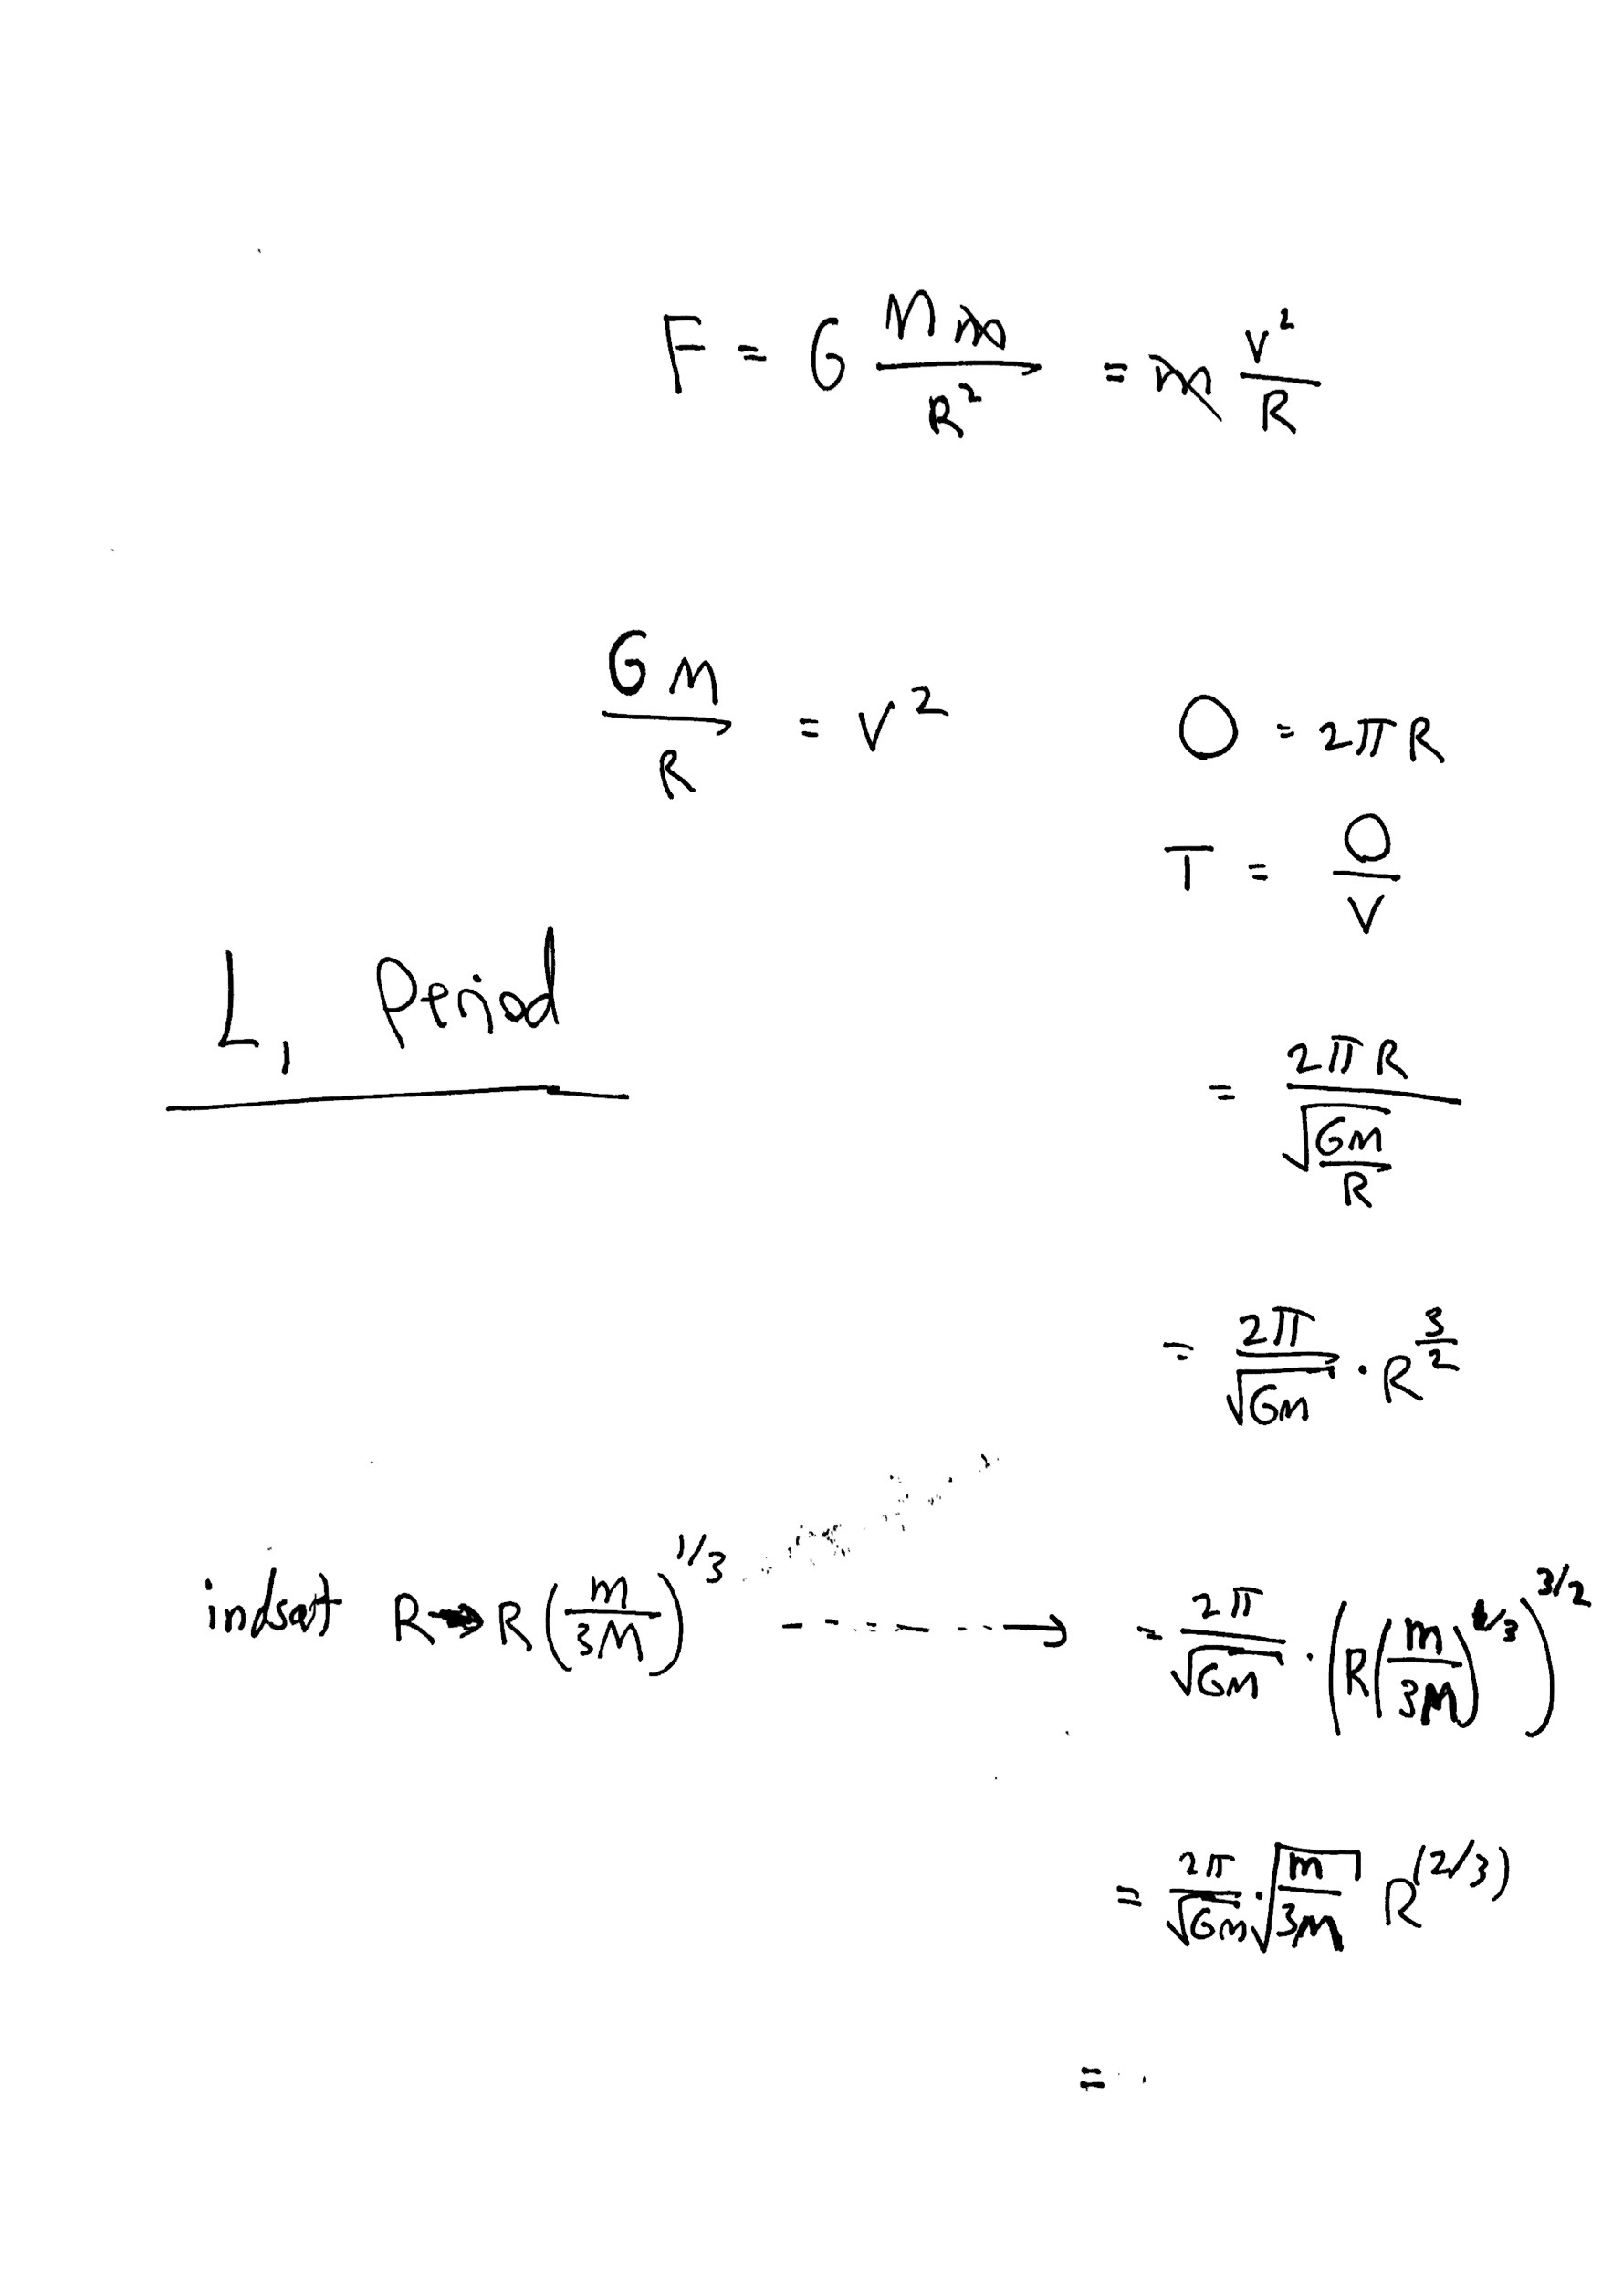 F = G Mm/R² = m v²/R
GM/R = v²
O = 2πR
T = O/v
L₁ Period
= 2πR/√(GM/R)
= 2π/√(GM) · R^(3/2)
indsæt R → R(m/3M)^(1/3) -----→ = 2π/√(GM) · (R(m/3M)^(1/3))^(3/2)
= 2π/√(Gm) · √(m/3M) R^(2/3)
= .